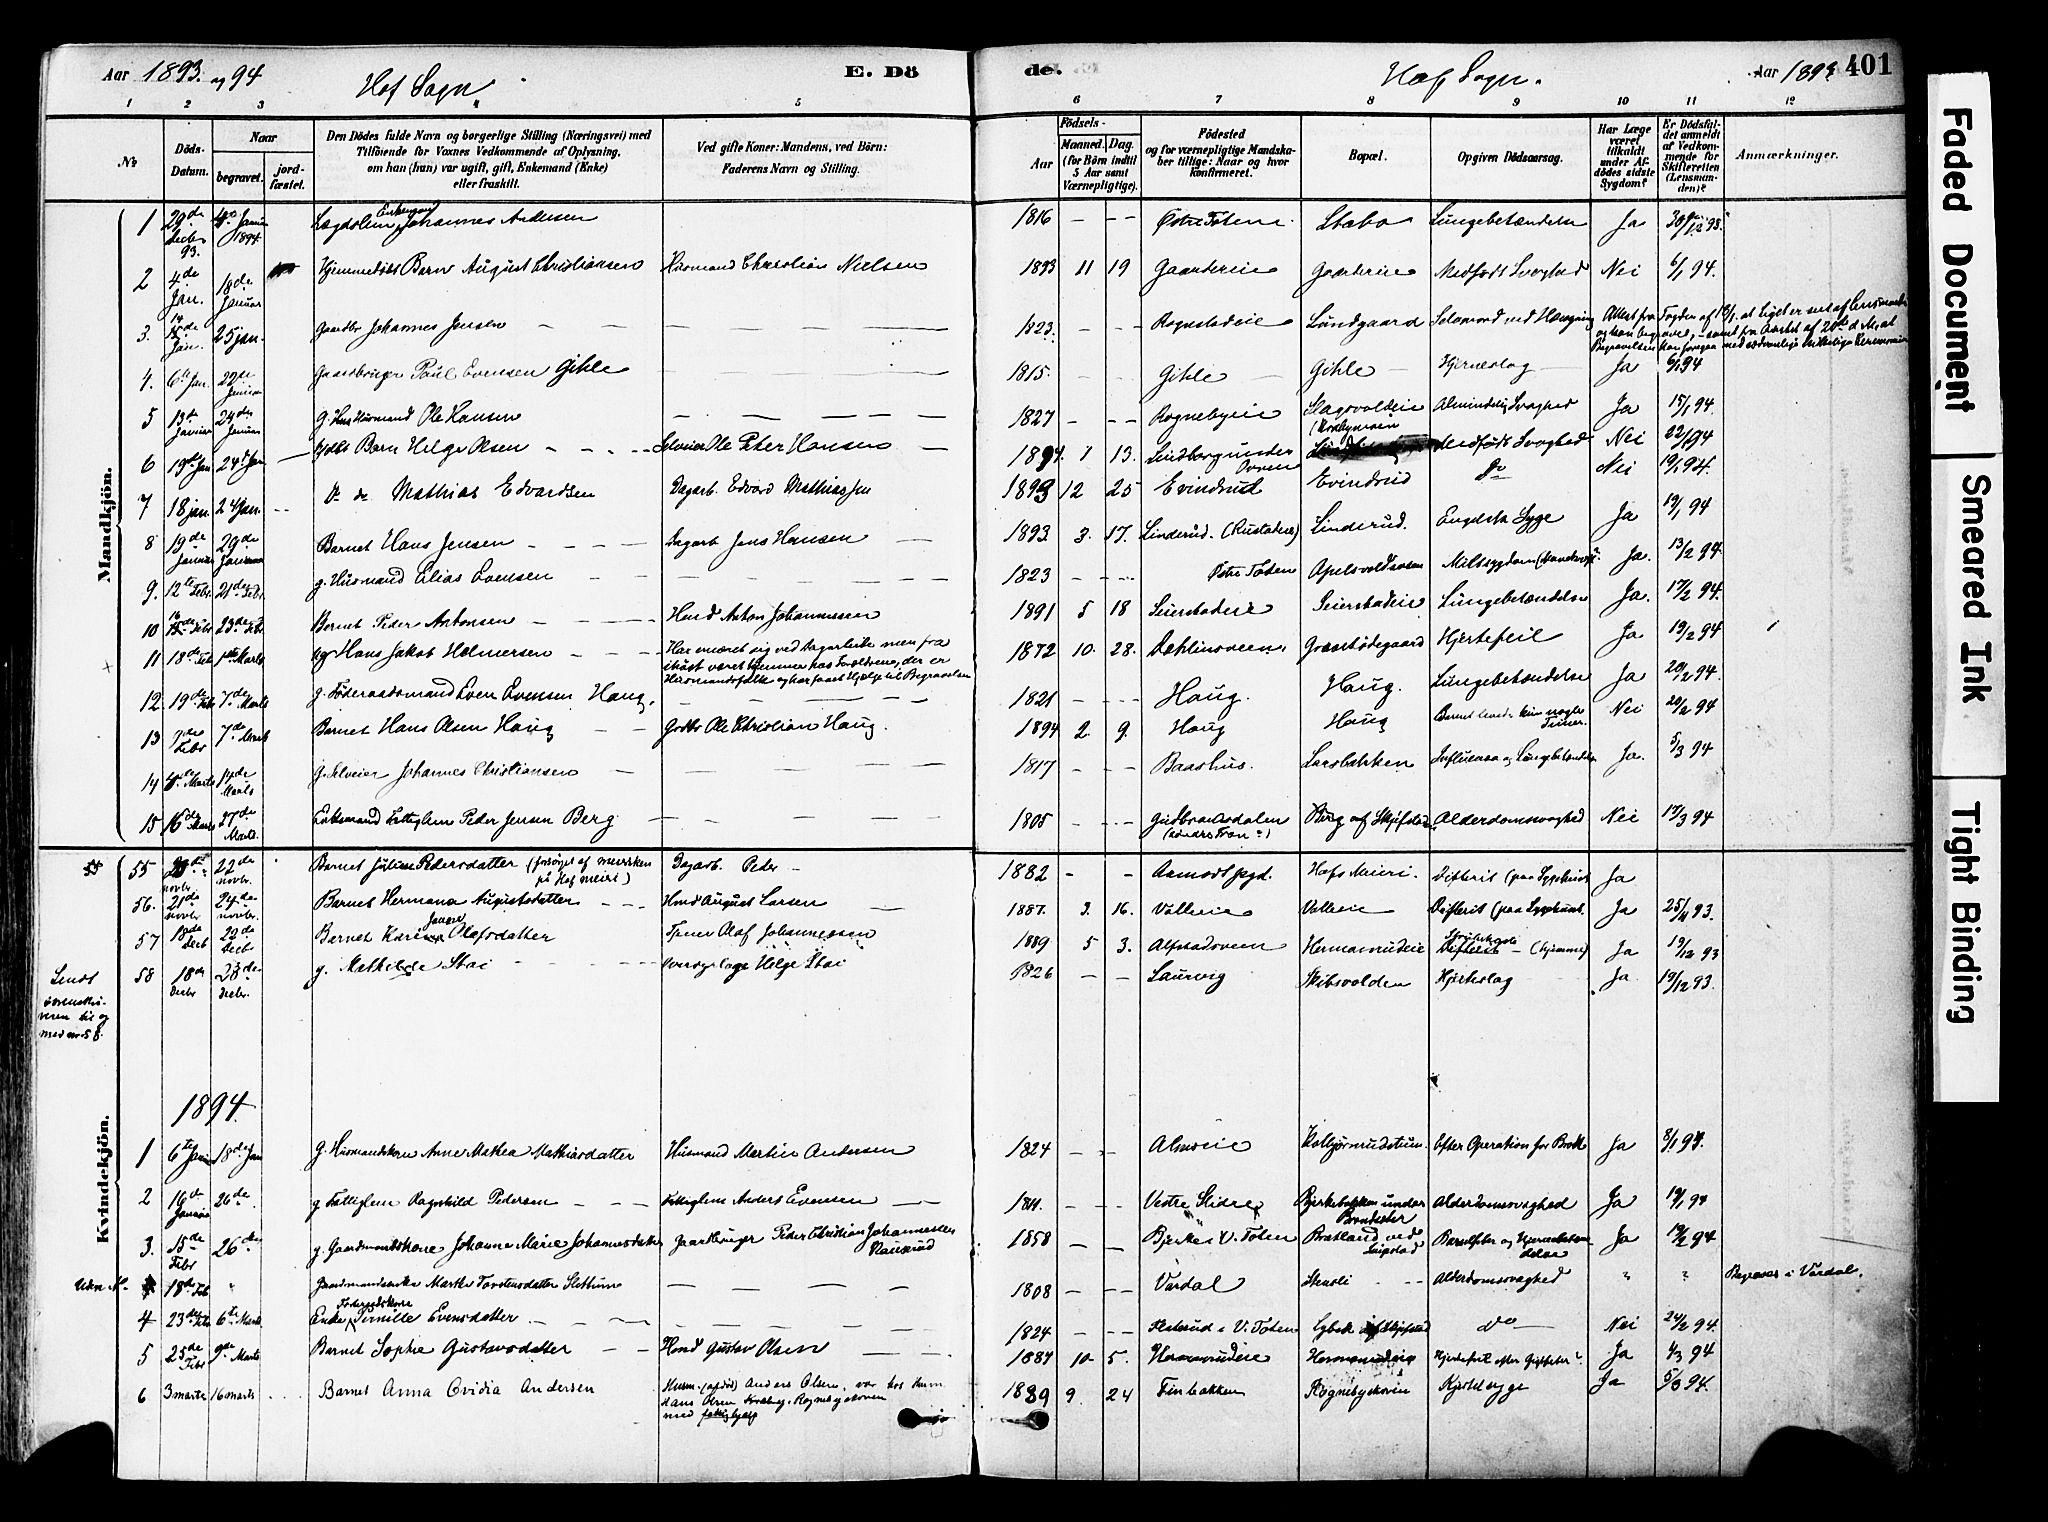 Aar 1893. og 94
Hof Sogn
E. Dö
de.
Hof Sogn.
Aar 1893
401
1 2 3 4 5 6 7 8 9 10 11 12
No
Döds-Datum.
Naar
begravet.
jord-fæstet.
Den Dödes fulde Navn og borgerlige Stilling (Næringsvei) med
Tilföiende for Voxnes Vedkommende af Oplysning,
om han (hun) var ugift, gift, Enkemand (Enke)
eller fraskilt.
Ved gifte Koner: Mandens, ved Börn:
Faderens Navn og Stilling.
Födsels-
Aar
Maaned. Dag.
(for Börn indtil
5 Aar samt
Værnepligtige).
Födested
og for værnepligtige Mandska-
ber tillige: Naar og hvor
konfirmeret.
Bopæl.
Opgiven Dödsaarsag.
Har Læge
været
tilkaldt
under Af-
dödes sidste
Sygdom?
Er Dödsfal-
det anmeldt
af Vedkom-
mende for
Skifteretten
(Lensman-
den)?
Anmærkninger.
Mandkjön.
1 29de Decbr 93. Januar 1894 Lægdslem Enkemand Johannes Andersen 1816 — — Østre Toten Stabo Lungebetændelse Ja 30/12 93.
2 4de Jan. 18de Januar Hjemmedöbt Barn August Christiansen Husmand Christian Nielsen 1893 11 19 Gaardereie Gaardereie Medfødt Svaghed Nei 6/1 94.
3. Jan. 25 jan. Gaardbr Johannes Jensen — — 1823. Rognstadeie Lundgaard Selvmord ved Hængning Attest fra Fogden af at Liget er set af Lensmanden
og kan begraves, samt fra Amtet af 20de d. M., at
Begravelsen kan foregaa med sædvanlige kirkelige Ceremonier
4. 6te Jan. 22de Januar Gaardbruger Paul Evensen Gihle 1815. Gihle Gihle Hjerneslag Ja 6/1 94
5 13de Januar 24de Januar g. Husmand Ole Hansen 1827 Rognebyeie Slagsvoldeie Almindelig Svaghed Ja 15/1 94.
6 19de Jan 24de Jan Barn Helge Olsen Selveier Ole Peter Hansen 1894. 1 13. Lindborg under Medfødt Svaghed Nei 22/1 94
7 18 jan. 24 Jan. Do do Mathias Edvardsen Dagarb. Edvard Mathiasen 1893 12 25 Evindrud Evindrud Do Nei 19/1 94.
8 19de Januar 29de Januar Barnet Hans Jensen Dagarb Jens Hansen 1893. 3. 17. Linderud. (Rustadeie) Linderud. Engelsk Syge Ja 19/1 94
9. 12te Febr. 21de Febr. g. Husmand Elias Evensen 1823 Østre Toten Miltsygdom Ja. 13/2 94.
10 Febr 23de Febr Barnet Peder Antonsen Husmd Anton Johannessen 1891 5 18 Seierstadeie Seierstadeie Lungebetændelse Ja. 17/2 94.
11 18de Feb 1ste Marts ug Hans Jakob Helmersen Har ernæret sig ved Dagarbeide men fra
ihöst været hjemme hos Forældrene, der er
Husmandsfolk og har faaet Hjælp til Begravelsen 1872 10. 28. Dehlinsveen. Grønstödegaard Hjertefeil Ja 19/2 94
12. 19de Feb 7de Marts g. Föderaadsmand Even Evensen Haug. 1821 Haug. Haug. Lungebetændelse Ja 20/2 94.
13 7de Febr 7de Marts Barnet Hans Olsen Haug Grdbr Ole Christian Haug. 1894 2. 9. Haug Haug Barnet levede kun nogle Timer. Nei 20/2 94
14 Marts 14de Marts g. Selveier Johannes Christiansen 1817 Baashus. Larsbakken Influensa og Lungebetændelse Ja. 5/3 94
15 16de Marts 27de Marts. Enkemand Fattiglem Peder Jensen Berg 1805 Gudbrandsdalen (söndre Fron?) Berg af Skjefstad Alderdomssvaghed Nei 17/3 94
55 novbr 22de novbr. Barnet Juline Pedersdatter (forsörget af mennsken
på Hof meieri) Dagarb. Peder — 1882 Aamodt pgd. Hofs Meieri. Difterit (paa Sygehuset Ja
56. 21de novbr 24de novbr. Barnet Hermana Augustsdatter Husmd August Larsen 1887. 3. 16. Volleeie Volleeie Difterit (paa Sygehuset. Ja 25/11 93.
57 18de Decbr 22de Decbr. Barnet Karine Olafsdatter Tjener Olaf Johannessen 1889 5 3. Alfstadsveen Hermanrudeie Strubehoste Difterit (hjemme) Ja 19/12 93
58 18de Decbr 23de Decbr. g. Mathilde Stai Overdyrlæge Helge Stai 1826 Laurvig Skibsvolden Hjerteslag Ja 19/12 93.
Sendt
til og
med no 58.
Kvindekjön.
1894.
1 6te Jan 18de Jan g. Husmandskone Anne Mathea Mathiasdatter Husmand Martin Andersen 1824 Almseie Kolbjörnrudstuen Efter Operation for Brok Ja 8/1 94.
2 16de Januar 26de. g Fattiglem Ragnhild Pedersen Fattiglem Anders Evensen 1811. Vestre Slidre Birkebakken under Alderdomssvaghed Ja 19/1 94
3. 15de Febr 26de g. Gaardmandskone Johanne Marie Johannesdatter Gaardbruger Peder Christian Johannessen 1858 Bjerke i V. Toten Brotland ved Barselfeber og Hjernebetændelse Ja 19/2 94
Uden N. 18de Feb " Gaardmandsenke Marthe Torstensdatter Slettum 1808 Vardal Stensli Alderdomssvaghed " " Begraves i Vardal.
4 23de Febr 6te Marts Enke Föderaadskone Pernille Evensdatter 1824 i V. Toten do Nei 24/2 94.
5 25de Febr 9de Marts Barnet Sophie Gustavsdatter Husmd Gustav Olsen 1887 10. 5. Hermanrudeie Hermanrudeie Hjertefeil efter Gigtfeber. Ja 1/3 94
6 3 marts 16 marts Barnet Anna Ovidia Andersen Husm. (afdöd) Anders Olsen, var hos Husm
Hans Olsen Kroeberg, Rognebyskoven
med fattighjælp 1889 9 24 Finbakken Rognebyskovin Kjertelsyge Ja 5/3 94.
Faded Document
Smeared Ink
Tight Binding